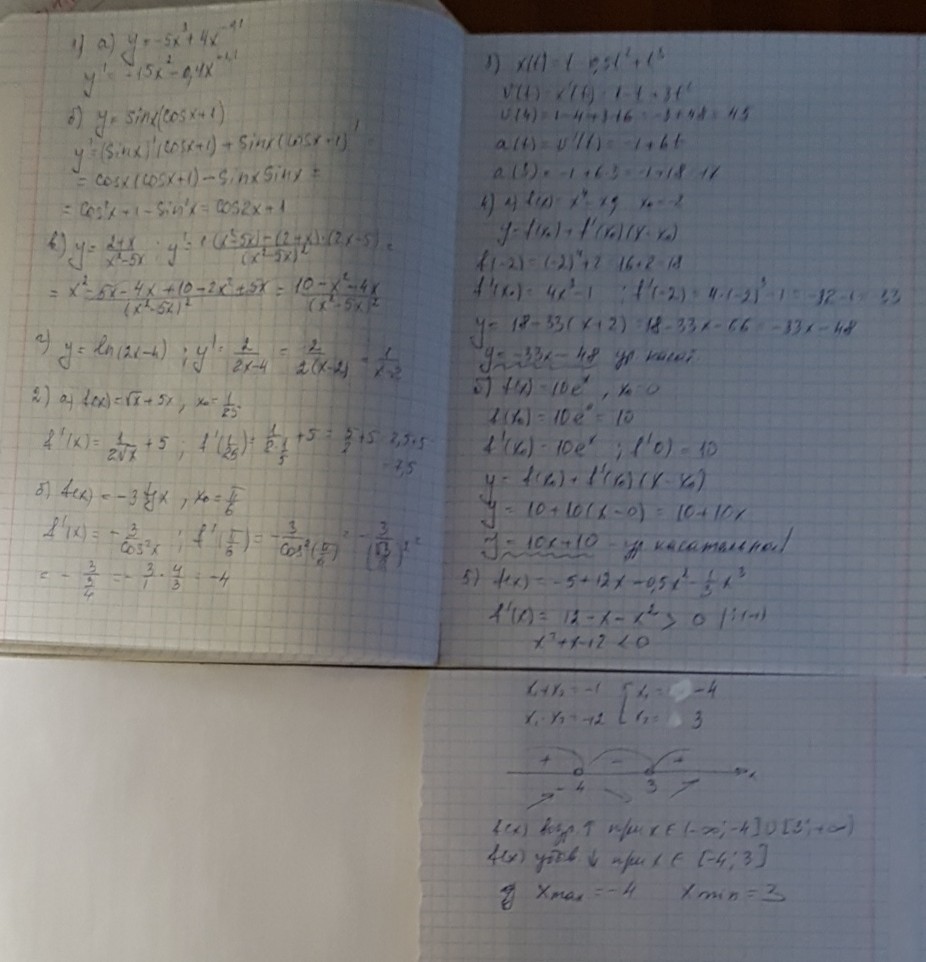 1) а) y = -5x³ + 4x^-0,1
y' = -15x² - 0,4x^-1,1
б) y = sinx(cosx+1)
y' = (sinx)'(cosx+1) + sinx(cosx+1)' =
= cosx(cosx+1) - sinx sinx =
= cos²x + 1 - sin²x = cos2x + 1
в) y = (2+x)/(x²-5x) ; y' = (1(x²-5x) - (2+x)·(2x-5))/(x²-5x)² =
= (x² - 5x - 4x + 10 - 2x² + 5x)/(x²-5x)² = (10 - x² - 4x)/(x²-5x)²
г) y = ln(2x-4) ; y' = 2/(2x-4) = 2/(2(x-2)) = 1/(x-2)
2) а) f(x) = √x + 5x, x₀ = 1/25
f'(x) = 1/(2√x) + 5 ; f'(1/25) = 1/(2·1/5) + 5 = 5/2 + 5 = 2,5+5
= 7,5
б) f(x) = -3tgx, x₀ = π/6
f'(x) = -3/cos²x ; f'(π/6) = -3/cos²(π/6) = -3/(√3/2)² =
= -3/(3/4) = -3/1 · 4/3 = -4
3) x(t) = t - 0,5t² + t³
v(t) = x'(t) = 1 - t + 3t²
v(4) = 1 - 4 + 3·16 = -3 + 48 = 45
a(t) = v'(t) = -1 + 6t
a(3) = -1 + 6·3 = -1 + 18 = 17
4) а) f(x) = x⁴ - x, x₀ = -2
y = f(x₀) + f'(x₀)(x-x₀)
f(-2) = (-2)⁴ + 2 = 16 + 2 = 18
f'(x₀) = 4x³ - 1 ; f'(-2) = 4·(-2)³ - 1 = -32 - 1 = 33
y = 18 - 33(x+2) = 18 - 33x - 66 = -33x - 48
y = -33x - 48 ур касат.
б) f(x) = 10eˣ, x₀ = 0
f(x₀) = 10e⁰ = 10
f'(x₀) = 10eˣ ; f'(0) = 10
y = f(x₀) + f'(x₀)(x-x₀)
y = 10 + 10(x-0) = 10 + 10x
y = 10x + 10 - ур касательной
5) f(x) = -5 + 12x - 0,5x² - 1/3 x³
f'(x) = 12 - x - x² > 0 |:(-1)
x² + x - 12 < 0
x₁+x₂ = -1 [ x₁ = -4
x₁·x₂ = -12 [ x₂ = 3
+ - +
-4 3 x
f(x) возр ↑ при x ∈ (-∞; -4] ∪ [3; +∞)
f(x) убыв ↓ при x ∈ [-4; 3]
xmax = -4 xmin = 3